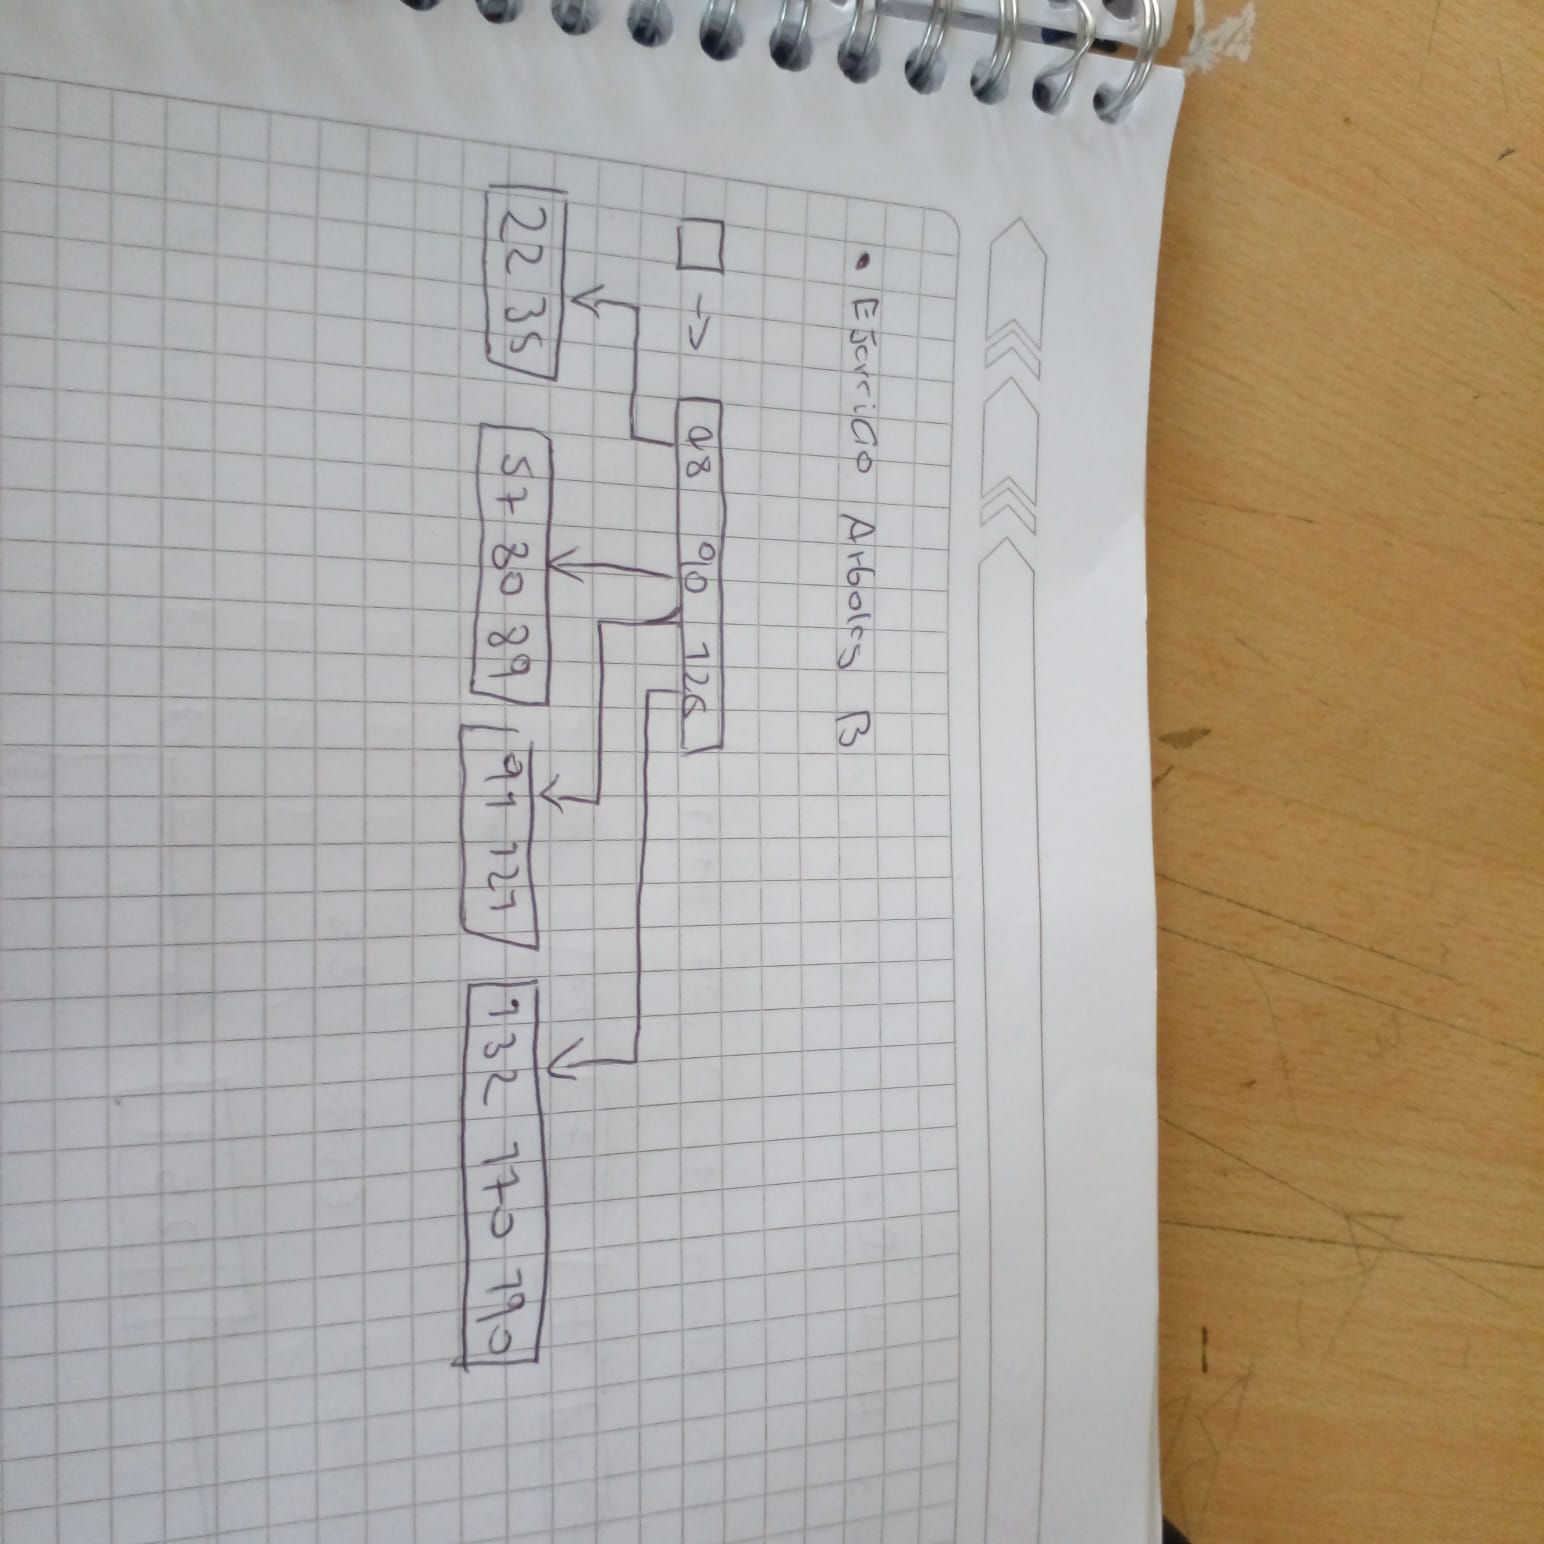 • Ejercicio Arboles B
□ -> 48 90 126
22 35 57 80 89 91 121 132 170 190